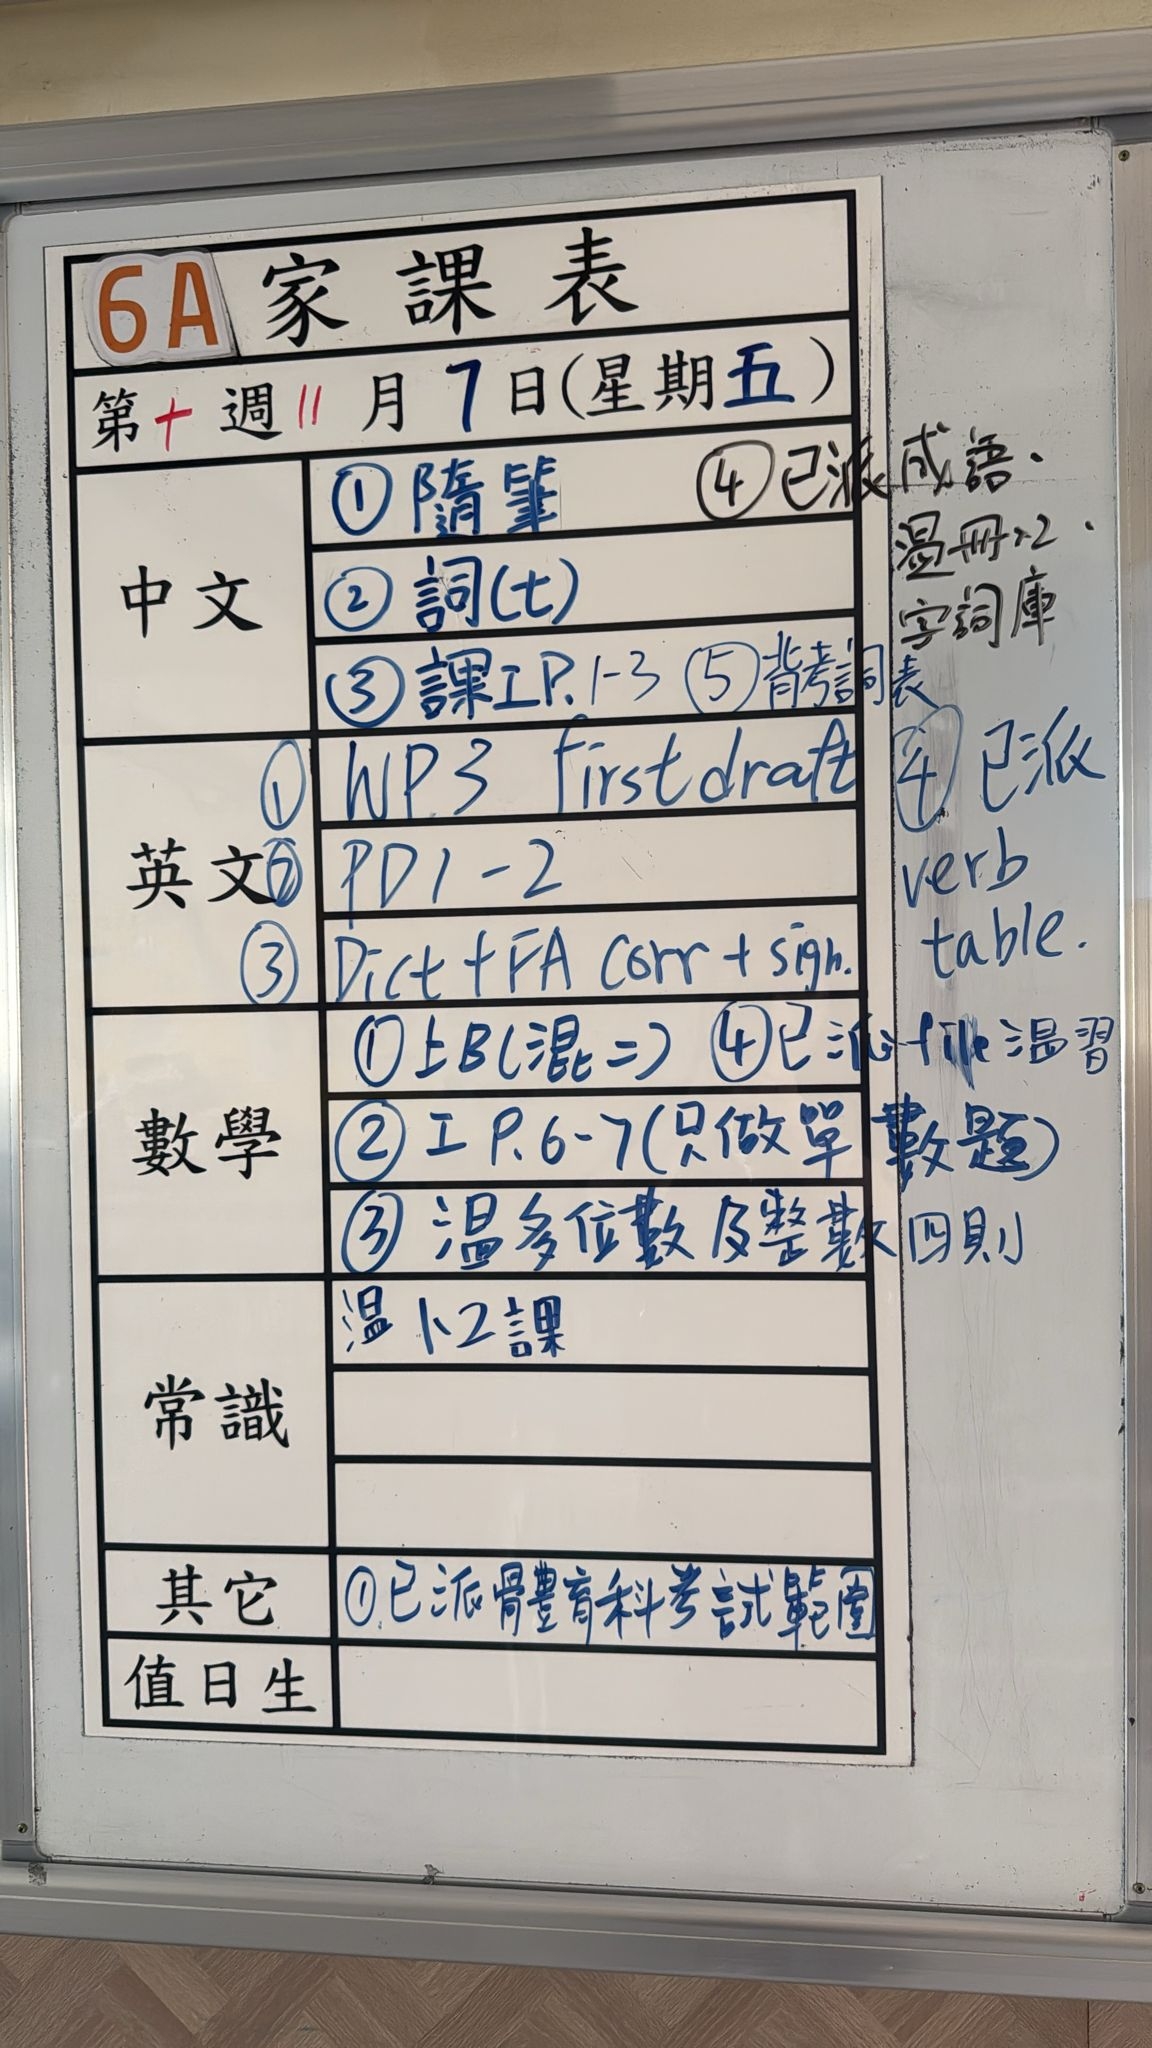 6A 家課表
第十週 11月7日(星期五)
中文
① 隨筆 ④已派成語、
溫冊x2、
字詞庫
② 詞(七)
③ 課工P.1-3 ⑤背考詞表
英文
① WP.3 first draft ④已派
verb
table.
② PD1-2
③ Dict + FA corr + sign.
數學
①上B(混二) ④已派file溫習
②工P.6-7(只做單數題)
③ 溫多位數及整數四則
常識
溫1、2課
其它
①已派體育科考試範圍
值日生